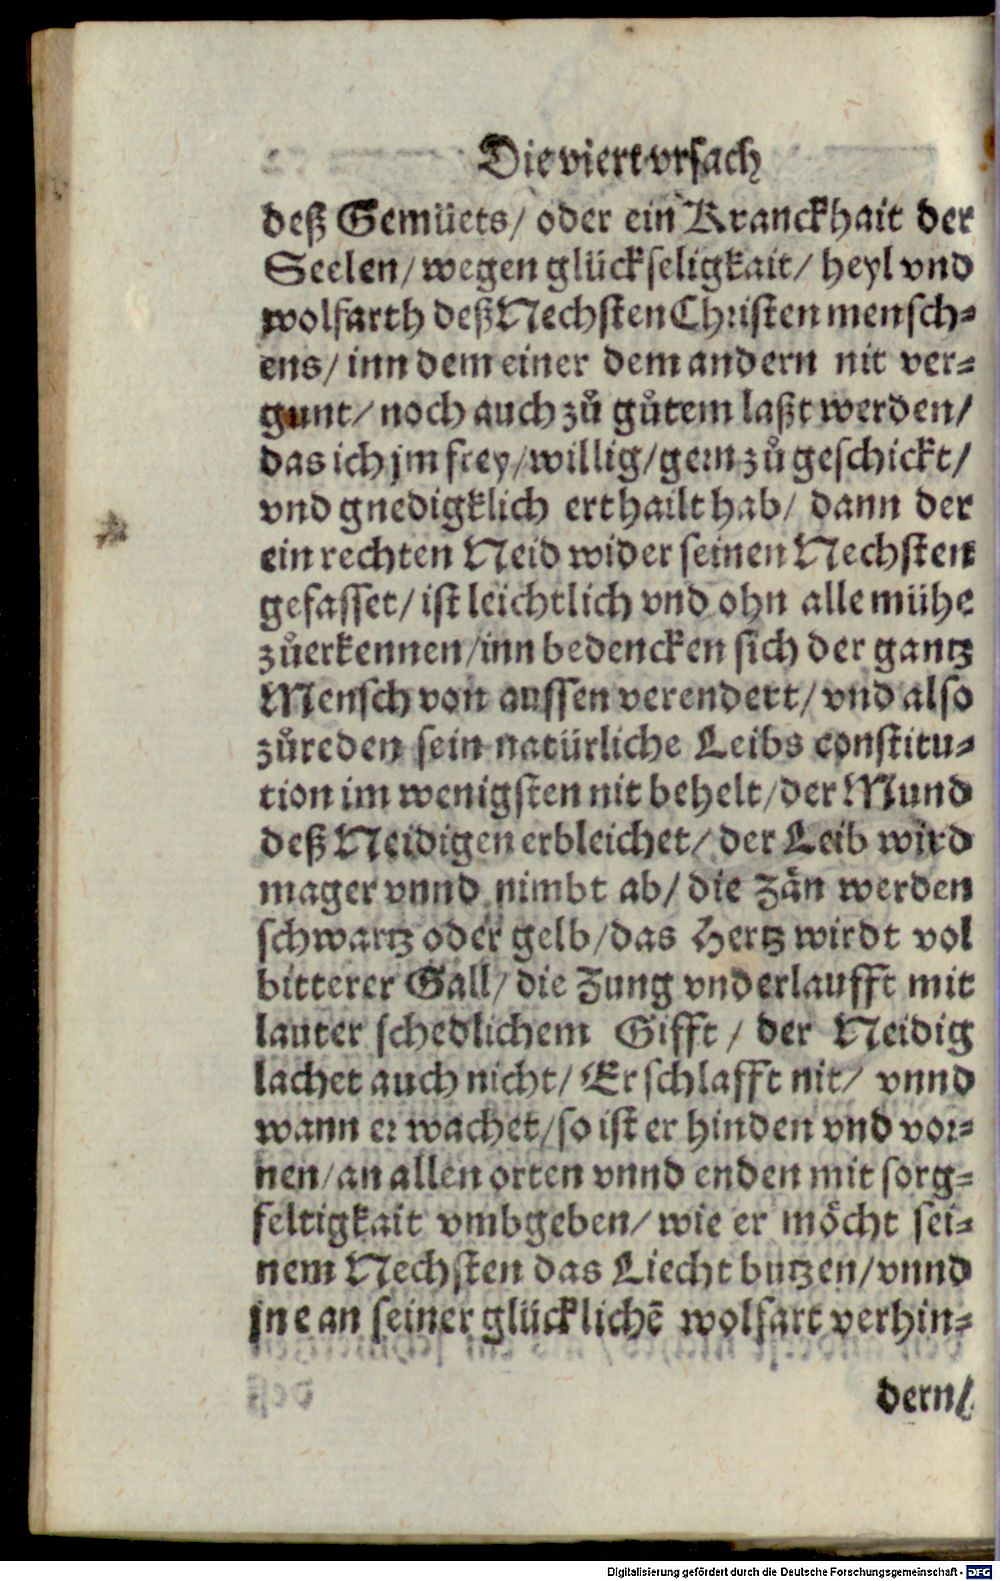 Die viert vrsach
deß Gemüets/ oder ein Kranckhait der
Seelen/ wegen glückseligkait/ heyl vnd
wolfarth deß Nechsten Christenmensch=
ens/ inn dem einer dem andern nit ver=
gunt/ noch auch zů gůtem laßt werden/
das ich jm frey/ willig/ gern zůgeschickt/
vnd gnedigklich erthailt hab/ dann der
ein rechten Neid wider seinen Nechsten
gefasset/ ist leichtlich vnd ohn alle mühe
zůerkennen/ inn bedencken sich der gantz
Mensch von aussen verendert/ vnd also
zůreden sein natürliche Leibs constitu=
tion im wenigsten nit behelt/ der Mund
deß Neidigen erbleichet/ der Leib wird
mager vnnd nimbt ab/ die Zän werden
schwartz oder gelb/ das Hertz wirdt vol
bitterer Gall/ die Zung vnderlaufft mit
lauter schedlichem Gifft/ der Neidig
lachet auch nicht/ Er schlafft nit/ vnnd
wann er wachet/ so ist er hinden vnd vor=
nen/ an allen orten vnnd enden mit sorg=
feltigkait vmbgeben/ wie er möcht sei=
nem Nechsten das Liecht butzen/ vnnd
jne an seiner glücklichē wolfart verhin=
dern/
Digitalisierung gefördert durch die Deutsche Forschungsgemeinschaft - DFG